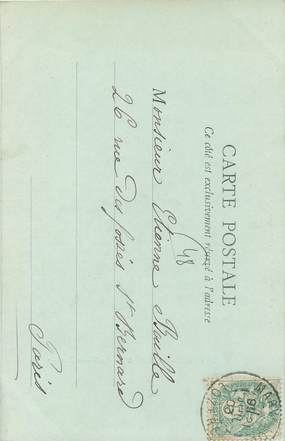 CARTE POSTALE
Ce côté est exclusivement réservé à l'adresse
48
Monsieur Etienne Baille
26 rue des fossés St Bernard
Paris